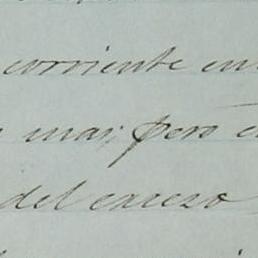 corriente en
mas; pero
del exceso